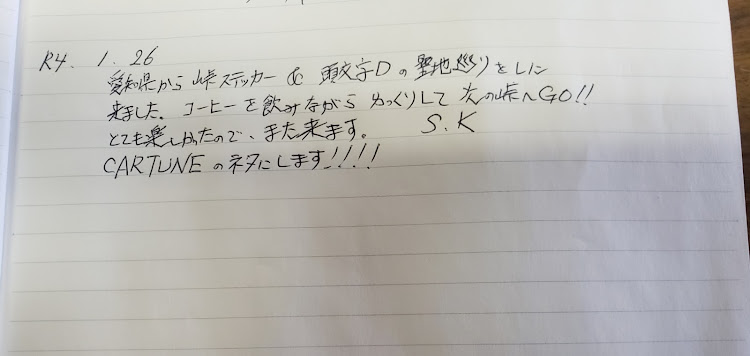 R4. 1. 26
愛知県から峠ステッカー & 頭文字Dの聖地巡りをしに
来ました。コーヒーを飲みながらゆっくりして次の峠へGO!!
とても楽しかったので、また来ます。 S.K
CARTUNEのネタにします!!!!